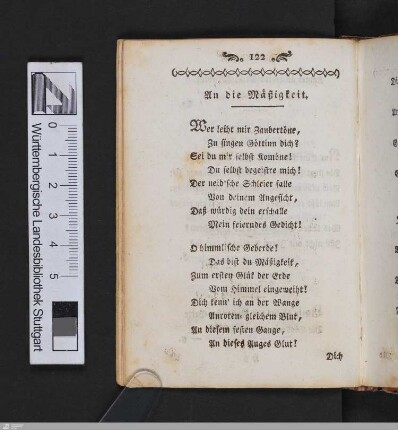 122
An die Mäßigkeit.
Wer leiht mir Zaubertöne,
Zu singen Göttinn dich?
Sei du mir selbst Kamöne!
Du selbst begeistre mich!
Der neid'sche Schleier falle
Von deinem Angesicht,
Daß würdig dein erschalle
Mein feierndes Gedicht!
O himmlische Geberde!
Das bist du Mäßigkeit,
Zum ersten Glük der Erde
Vom Himmel eingeweiht!
Dich kenn' ich an der Wange
Auroten gleichem Blut,
An diesem festen Gange,
An dieses Auges Glut!
Dich
Württembergische Landesbibliothek Stuttgart
0
1
2
3
4
5